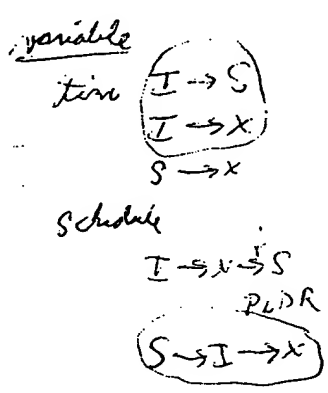 variable
time I → S
I → X
S → X
Schedule
I → X → S
S → I → X